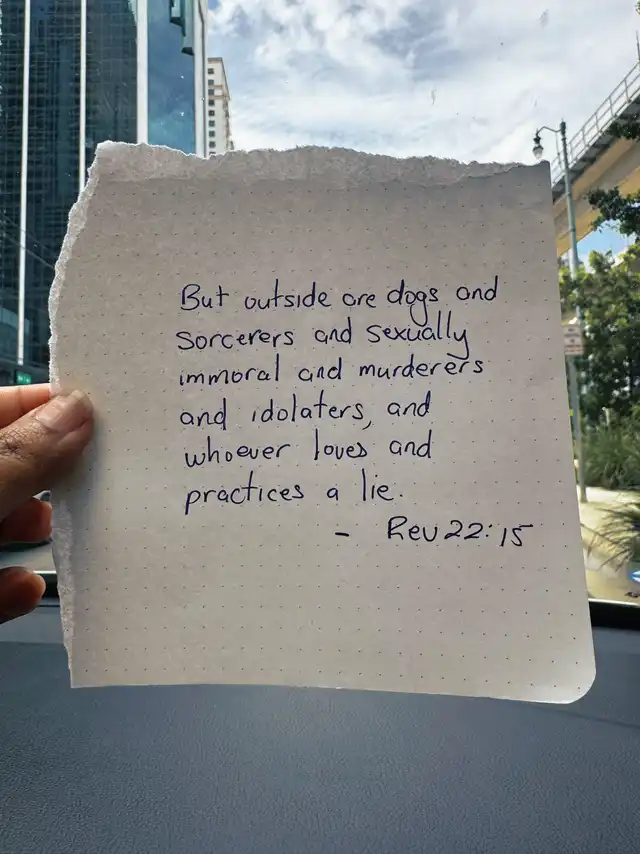 But outside are dogs and
sorcerers and sexually
immoral and murderers
and idolaters, and
whoever loves and
practices a lie.
- Rev 22:15